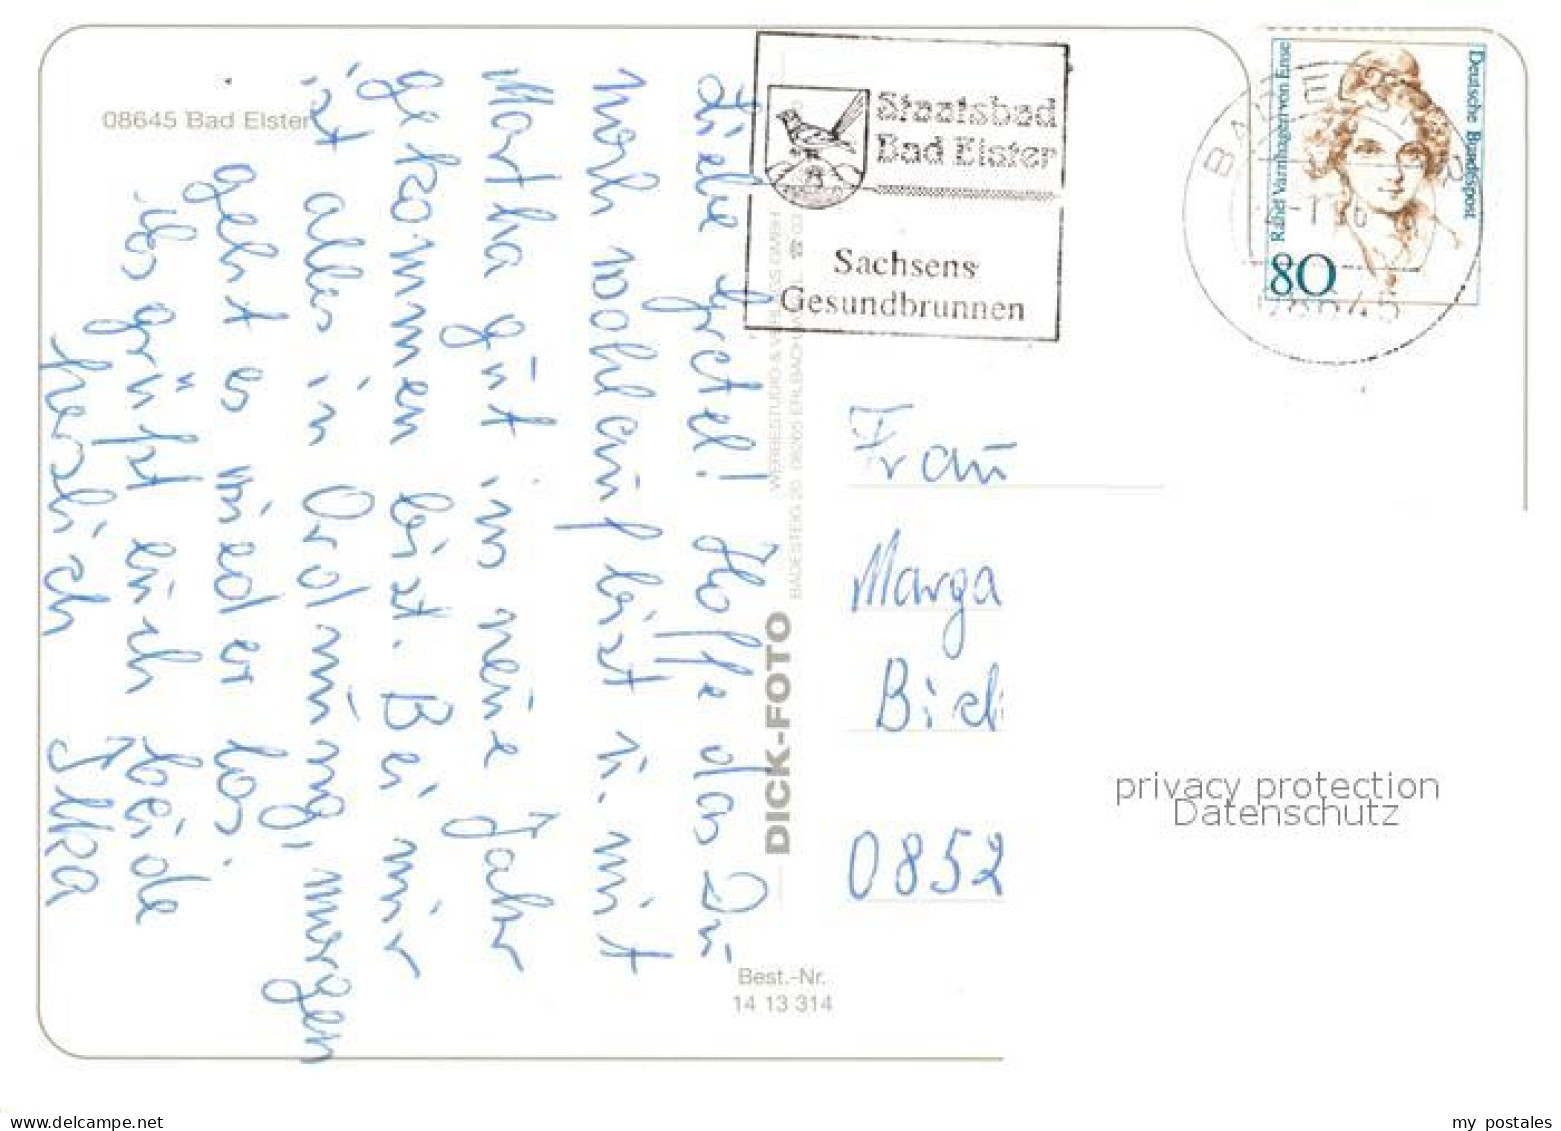 08645 Bad Elster
Liebe Gretel! Hoffe das Du
noch wohlauf bist u. mit
Martha gut ins neue Jahr
gekommen bist. Bei mir
ist alles in Ordnung, morgen
geht es wieder los.
Es grüßt euch beide
herzlich Ilka
WERBESTUDIO & VERLAGS GMBH
BADESTEIG 20 08265 ERLBACH
DICK-FOTO
Best.-Nr.
14 13 314
Staatsbad
Bad Elster
Sachsens
Gesundbrunnen
BAD ELSTER
08645
Rahel Varnhagen von Ense
Deutsche Bundespost
80
Frau
Marga
0852
privacy protection
Datenschutz
www.delcampe.net
my_postales